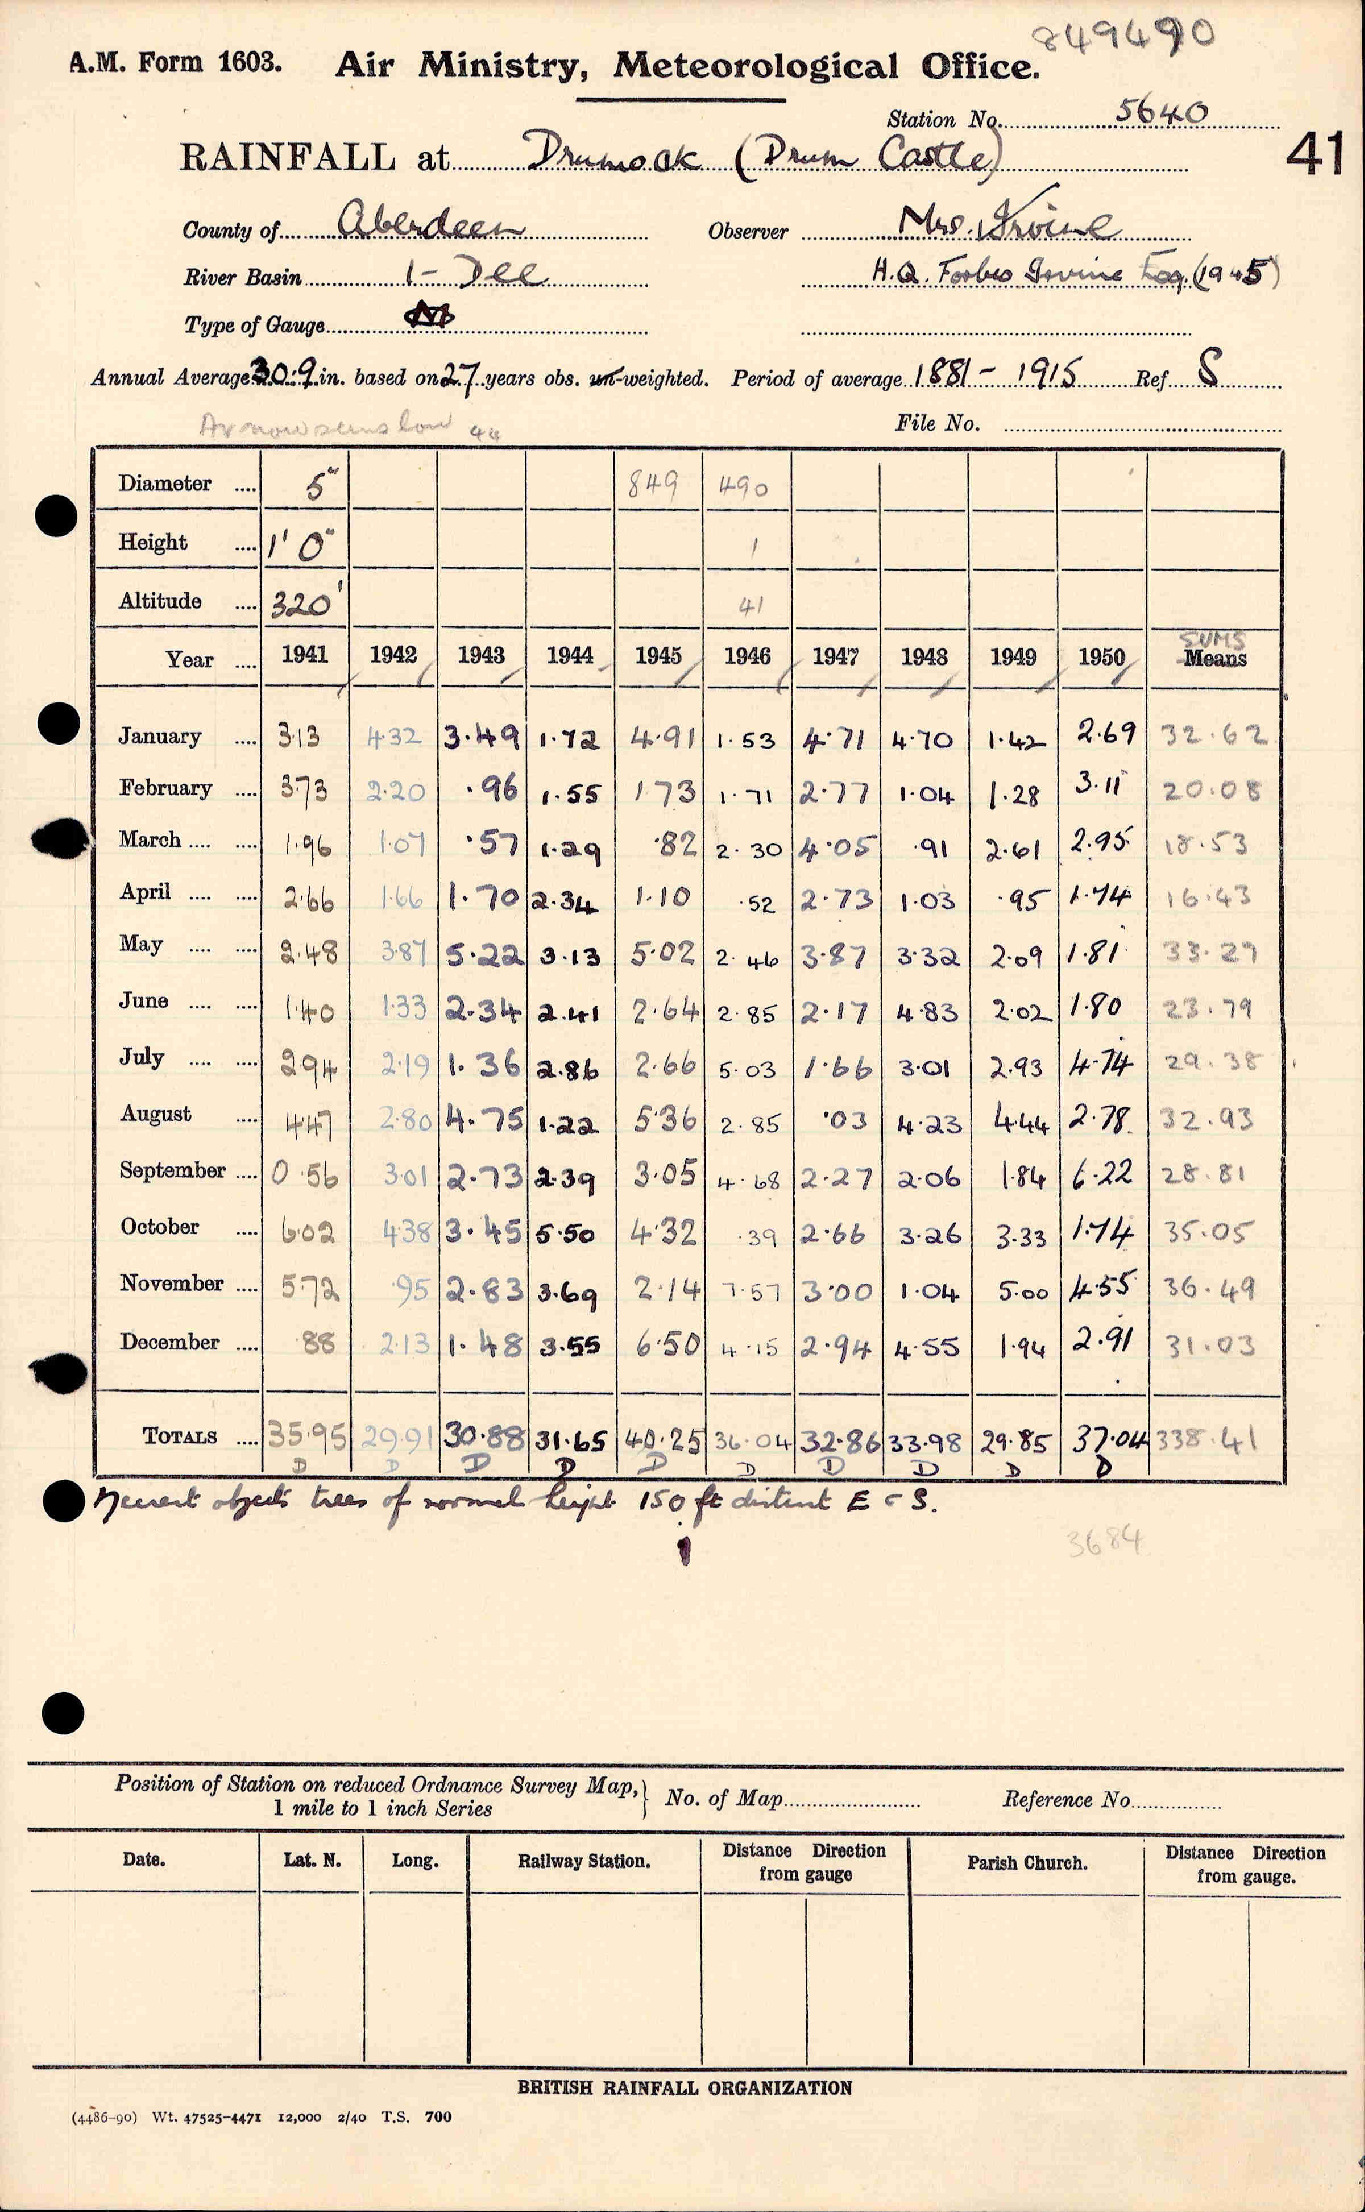 849490
A.M. Form 1603. Air Ministry, Meteorological Office.
Station No. 5640
RAINFALL at Drumoak (Drum Castle) 41
County of Aberdeen Observer Mrs. Irvine
River Basin 1 - Dee H.Q. Forbes Irvine Esq. (1945)
Type of Gauge M
Annual Average 30.9 in. based on 27 years obs. un-weighted. Period of average 1881 - 1915 Ref S
Av now seems low 44 File No.
Diameter .... 5" 849 490
Height .... 1' 0" 1
Altitude .... 320' 41
SUMS
Year .... 1941 1942 1943 1944 1945 1946 1947 1948 1949 1950 Means
January .... 3.13 4.32 3.49 1.72 4.91 1.53 4.71 4.70 1.42 2.69 32.62
February .... 3.73 2.20 .96 1.55 1.73 1.71 2.77 1.04 1.28 3.11 20.08
March .... .... 1.96 1.07 .57 1.29 .82 2.30 4.05 .91 2.61 2.95 18.53
April .... .... 2.66 1.66 1.70 2.34 1.10 .52 2.73 1.03 .95 1.74 16.43
May .... .... 2.48 3.87 5.22 3.13 5.02 2.46 3.87 3.32 2.09 1.81 33.27
June .... .... 1.40 1.33 2.34 2.41 2.64 2.85 2.17 4.83 2.02 1.80 23.79
July .... .... 2.94 2.19 1.36 2.86 2.66 5.03 1.66 3.01 2.93 4.74 29.38
August .... 4.47 2.80 4.75 1.22 5.36 2.85 .03 4.23 4.44 2.78 32.93
September .... 0.56 3.01 2.73 2.39 3.05 4.68 2.27 2.06 1.84 6.22 28.81
October .... 6.02 4.38 3.45 5.50 4.32 .39 2.66 3.26 3.33 1.74 35.05
November .... 5.72 .95 2.83 3.69 2.14 7.57 3.00 1.04 5.00 4.55 36.49
December .... .88 2.13 1.48 3.55 6.50 4.15 2.94 4.55 1.94 2.91 31.03
TOTALS .... 35.95 29.91 30.88 31.65 40.25 36.04 32.86 33.98 29.85 37.04 338.41
D D D D D D D D D D
Nearest objects trees of normal height 150 ft distant E & S.
3684
Position of Station on reduced Ordnance Survey Map, No. of Map Reference No.
1 mile to 1 inch Series
Date. Lat. N. Long. Railway Station. Distance Direction from gauge Parish Church. Distance Direction from gauge.
BRITISH RAINFALL ORGANIZATION
(4486-90) Wt. 47525-4471 12,000 2/40 T.S. 700